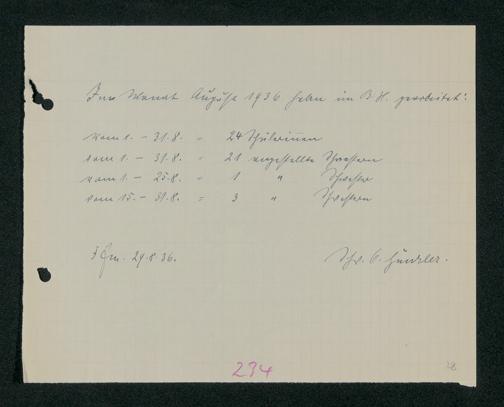 Im Monat August 1936 haben im B.H. gearbeitet:
vom 1. – 31.8. = 24 Schülerinnen
vom 1. – 31.8. = 21 angestellte Schwestern
vom 1. – 25.8. = 1 " Schwester
vom 15. – 31.8. = 3 " Schwestern
Ffm. 29.8.36.
Schw. C.
234